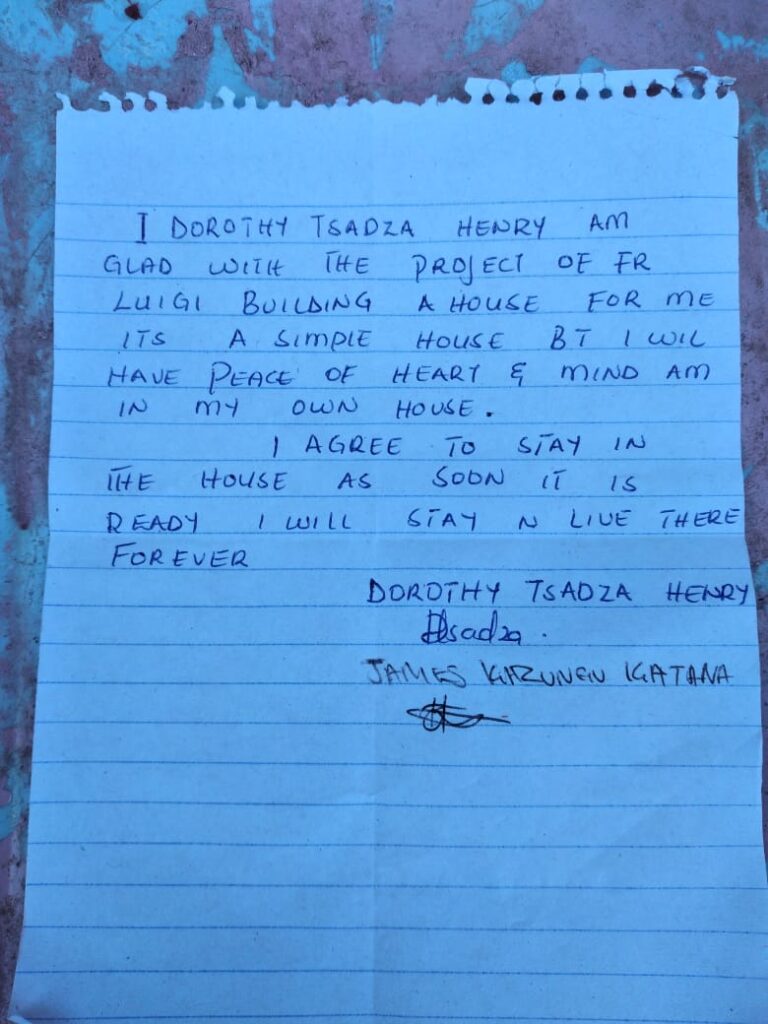 I DOROTHY TSADZA HENRY AM
GLAD WITH THE PROJECT OF FR
LUIGI BUILDING A HOUSE FOR ME
ITS A SIMPLE HOUSE BT I WIL
HAVE PEACE OF HEART & MIND AM
IN MY OWN HOUSE.
I AGREE TO STAY IN
THE HOUSE AS SOON IT IS
READY I WILL STAY N LIVE THERE
FOREVER
DOROTHY TSADZA HENRY
JAMES KATANA